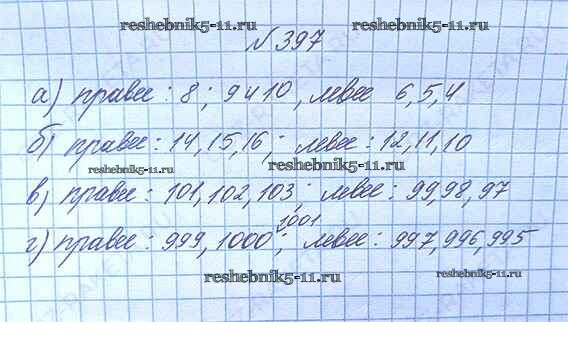 reshebnik5-11.ru reshebnik5-11.ru
№ 397
а) правее : 8 ; 9 и 10 , левее 6, 5, 4
б) правее : 14, 15, 16 ; левее : 12, 11, 10
reshebnik5-11.ru reshebnik5-11.ru
в) правее : 101, 102, 103 ; левее : 99, 98, 97
1001
г) правее : 999, 1000 ; левее : 997, 996, 995
reshebnik5-11.ru reshebnik5-11.ru